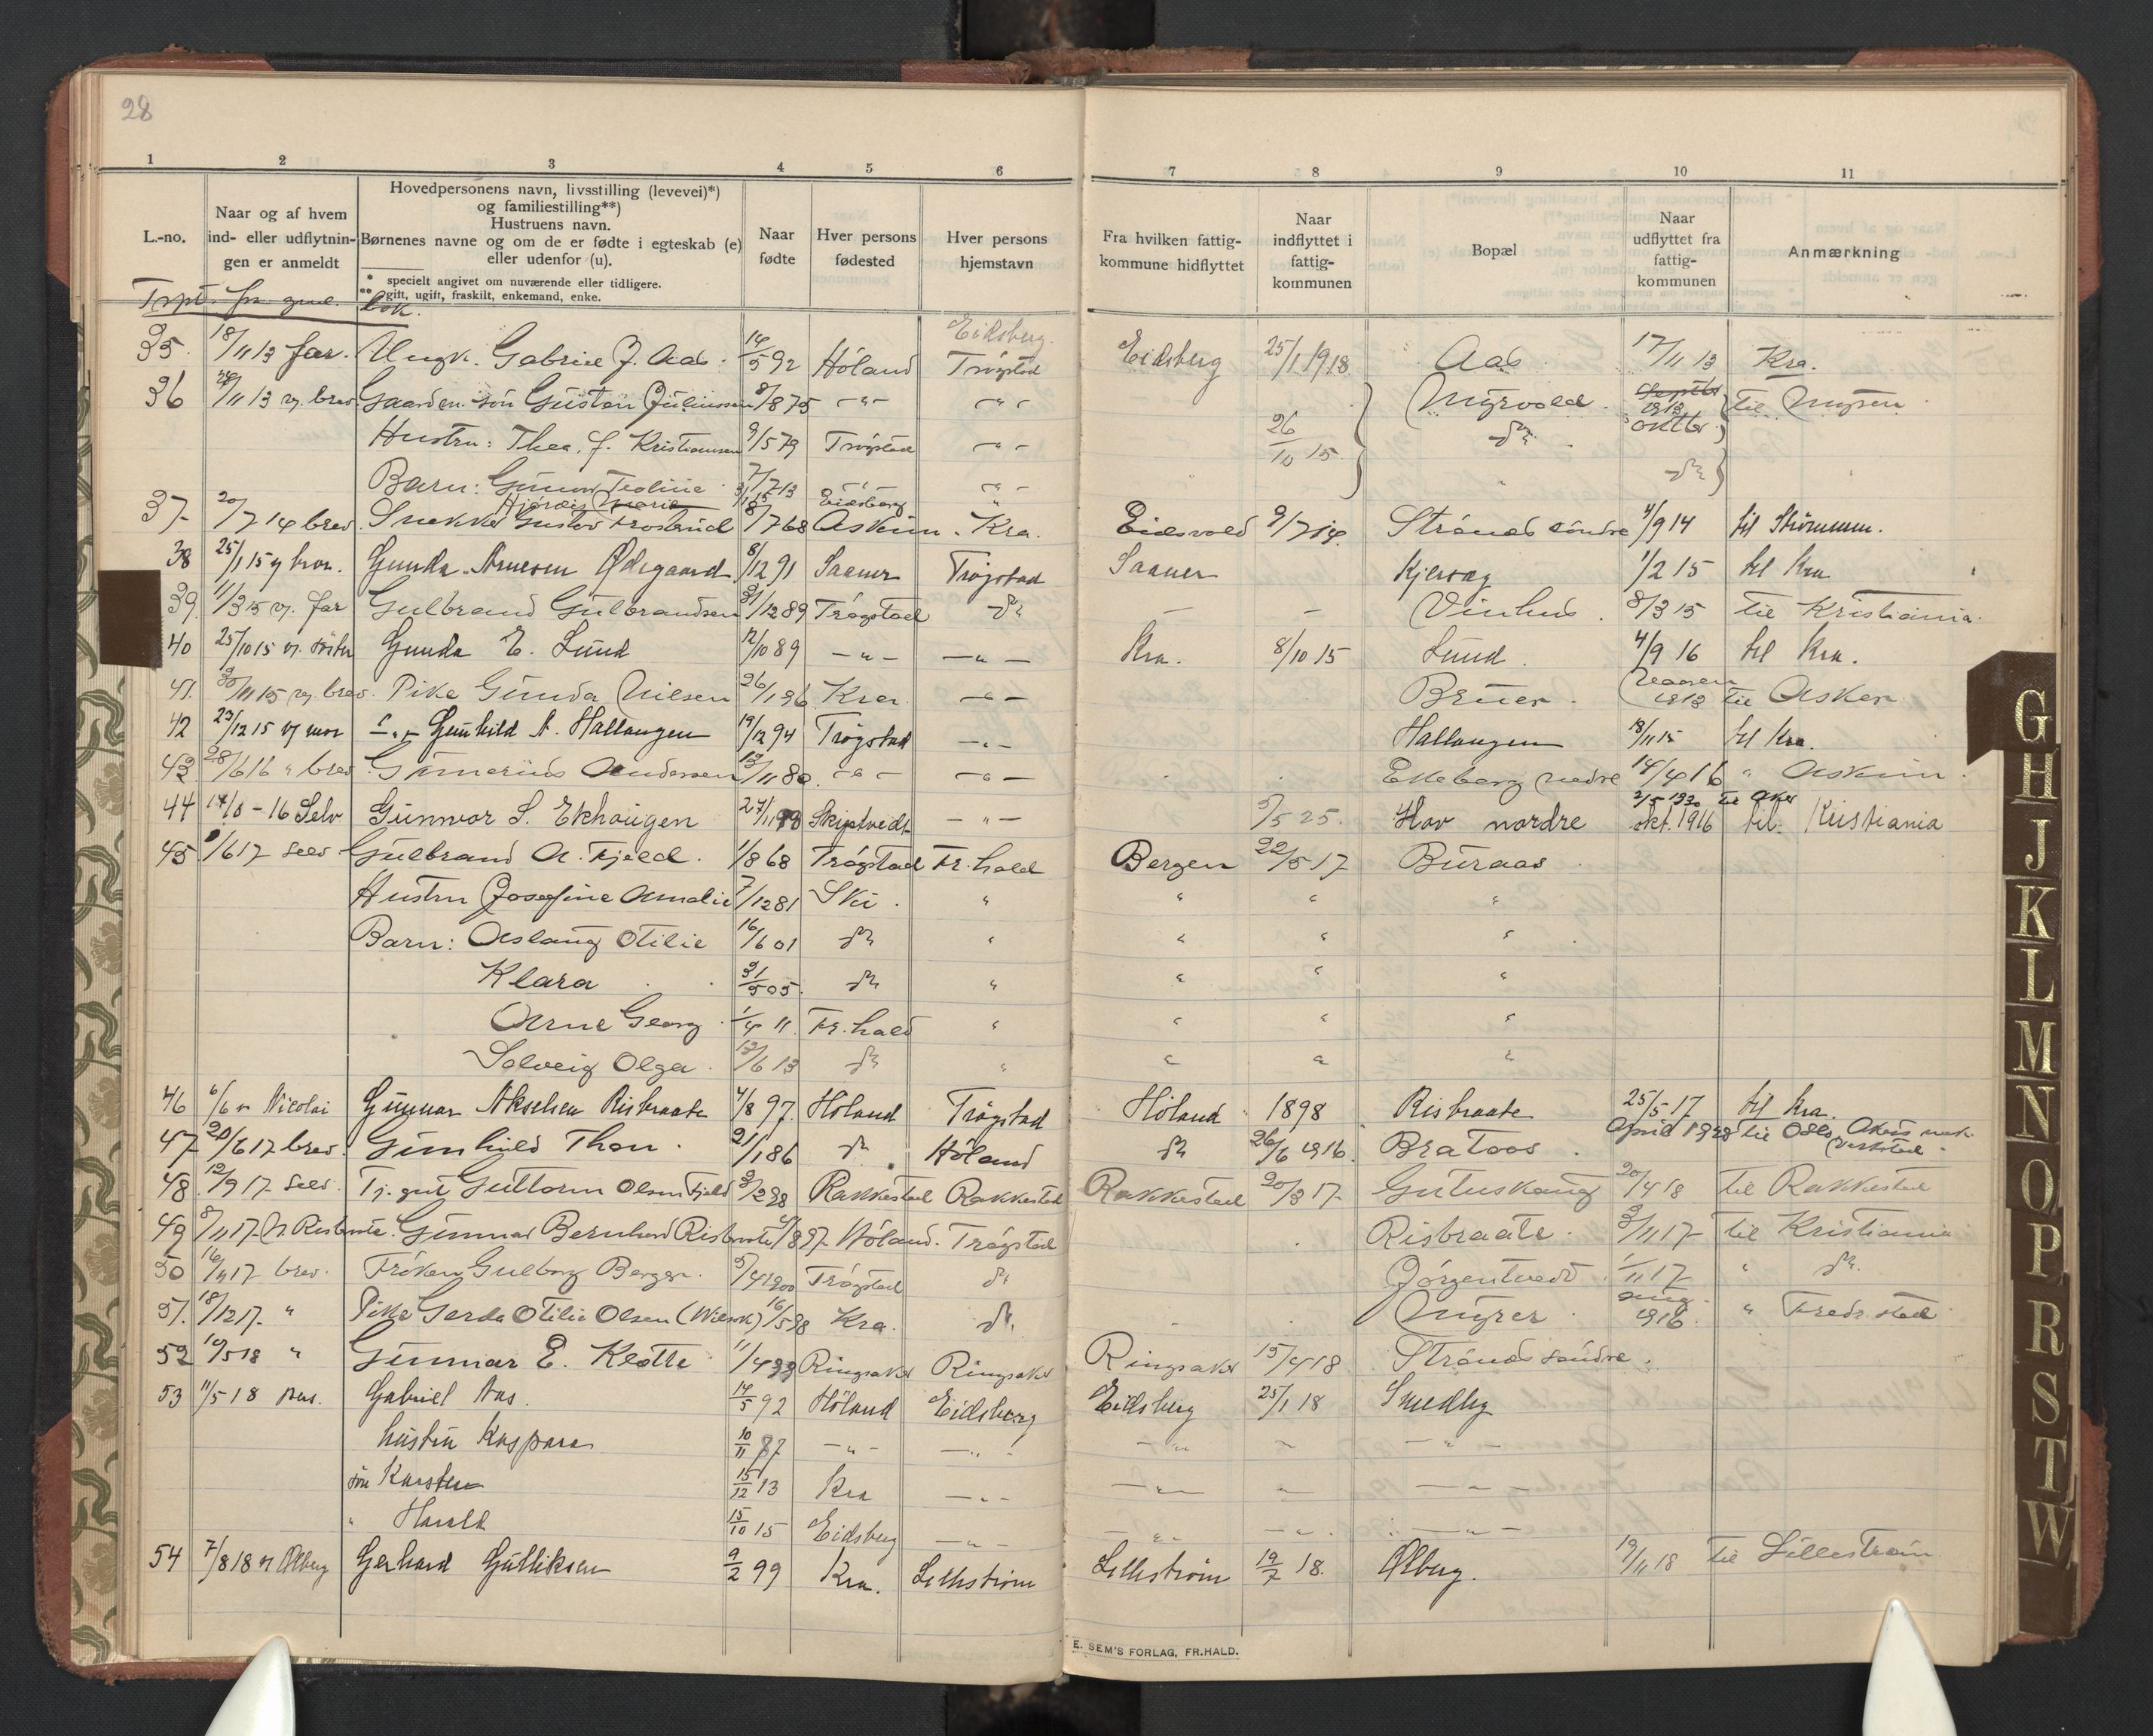 28
1 2 3 4 5 6 7 8 9 10 11
L.-no.
Naar og af hvem
ind- eller udflytnin-
gen er anmeldt
Hovedpersonens navn, livsstilling (levevei)*)
og familiestilling**)
Hustruens navn.
Børnenes navne og om de er fødte i egteskab (e)
eller udenfor (u).
* specielt angivet om nuværende eller tidligere.
** gift, ugift, fraskilt, enkemand, enke.
Naar
fødte
Hver persons
fødested
Hver persons
hjemstavn
Fra hvilken fattig-
kommune hidflyttet
Naar
indflyttet i
fattig-
kommunen
Bopæl
Naar
udflyttet fra
fattig-
kommunen
Anmærkning
Eidsberg.
35. 18/11 13 far. Ungk. Gabriel J. Aas. 14/5 92 Höland Trögstad Eidsberg 25/1 1918 Aas 17/11 13 Kra.
36 /11 13 vj. brev. Gaardm. sön Gustav Juliussen 8/8 75 -"- -"- Myrvold 1913 oktbr. til Mysen
Hustru: Thea, f. Kristiansen 9/5 79 Trögstad -"- 26/10 15 do
Barn: Gunvor Teoline 7/7 13 -"- -"- do
Hjördis Marie Eidsberg "
37- 20/7 14 brev. Snekker Gustav Frosterud 8/7 68 Askim. Kra. Eidsvold 9/7 14. Strönes söndre 4/9 14 til Strömmen.
38 25/1 15 vj bror. Gunda Arnesen Ødegaard 8/12 91 Saaner Trögstad Saaner Kjersag 1/2 15 til Kra
39. 11/3 15 vj. far Gulbrand Gulbrandsen 31/12 89 Trögstad do - - Vinhus. 8/3 15 til Kristiania.
40 25/10 15 vj. söster Gunda E. Lund 12/10 89 -"- -"- Kra. 8/10 15 Lund. 4/9 16 til Kra.
41. 30/11 15 vj. brev. Pike Gunda Nilsen 26/1 96 Kra. -"- Bruer. Vaaren 1913 til Asker
42 23/12 15 vj mor -"- Gunhild A. Hallangen 19/12 94 Trögstad -"- Hallangen 18/11 15 til Kra.
43. 28/6 16 " brev. Gunerius Andersen 12/11 80. -"- -"- Ekeberg nedre 14/4 16 " Askim.
2/5 1930 til Aker
44 14/8 - 16 Selv Gunnvor S. Ekhaugen 27/11 98 Skiptvedt -"- 5/5 25. Hov nordre okt. 1916 til Kristiania
45 /6 17 selv Gulbrand A. Fjeld. 1/8 68 Trögstad Fr.hald Bergen 22/5 17 Buraas
Hustru Josefine Amalie 7/12 81 Ski. " " " "
Barn: Aslaug Otilie 16/6 01 do " " " "
Klara 31/5 05. do " " " "
Arne Georg. 1/4 11. Fr.hald " " " "
Solveig Olga. 12/6 13 do " " " "
46 6/6 v Nicolai Gunnar Akselsen Risbraate 4/8 97. Höland Trögstad Höland 1898 Risbraate 25/5 17 til Kra.
47- 20/6 17 brev. Gunhild Thon. 21/1 86 do Höland do 26/6 1916. Brataas. April 1928 til Oslo, Akers mek.
verksted.
48. 12/9 17- selv. Tj.gut Guttorm Olsen Fjeld 3/2 98 Rakkestad Rakkestad Rakkestad 20/3 17- Gutuskaug 20/4 18 til Rakkestad
49 8/11 17- N. Risbraate. Gunnar Bernhard Risbraate 4/8 97- Höland. Trögstad Risbraate. 3/11 17- til Kristiania
50 16/11 17 brev. Fröken Gulborg Berger. 5/4 1900 Trögstad do Jörgentvedt. 1/11 17 " do.
51. 18/12 17. " Pike Gerda Otilie Olsen 16/5 98 Kra. do. Myrer. aug. 1916. " Fredr.stad
52 10/5 18 " Gunnar E. Klötte 11/4 99 Ringsaker Ringsaker Ringsaker 15/4 18 Strönes söndre.
53 11/5 18 pers. Gabriel Aas. 14/5 92 Höland Eidsberg Eidsberg 25/1 18 Smedby
hustru Kaspara 10/11 87 -"- -"- -"- " -"-
sön Karsten 15/12 13 Kra -"- -"- " -"-
" Harald 15/10 15 Eidsberg -"- -"- -"- -"-
54 7/8 18 vj Ølberg Gerhard Gulliksen 9/2 99 Kra. Lillestrøm Lillestrøm 19/7 18. Ølberg. 19/11 18 til Lillestrøm
E. SEM'S FORLAG, FR.HALD.
G
H
J
K
L
M
N
O
P
R
S
T
W